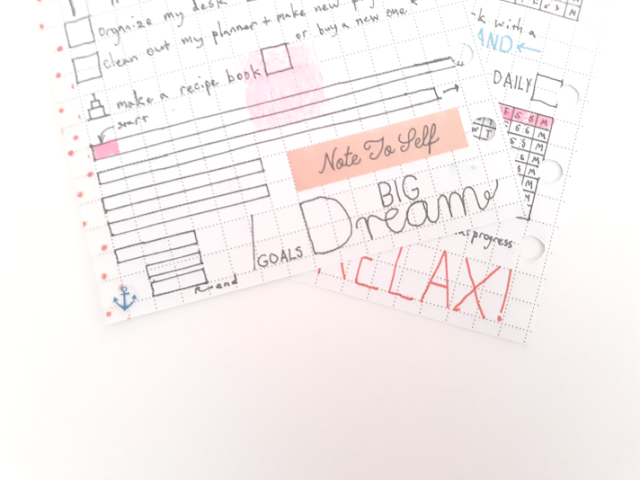 organize my desk
clean out my planner + make new
or buy a new one
make a recipe book
start
Note To Self
BIG
Dream
GOALS
end
with a
AND
DAILY
F S S M
W T
progress